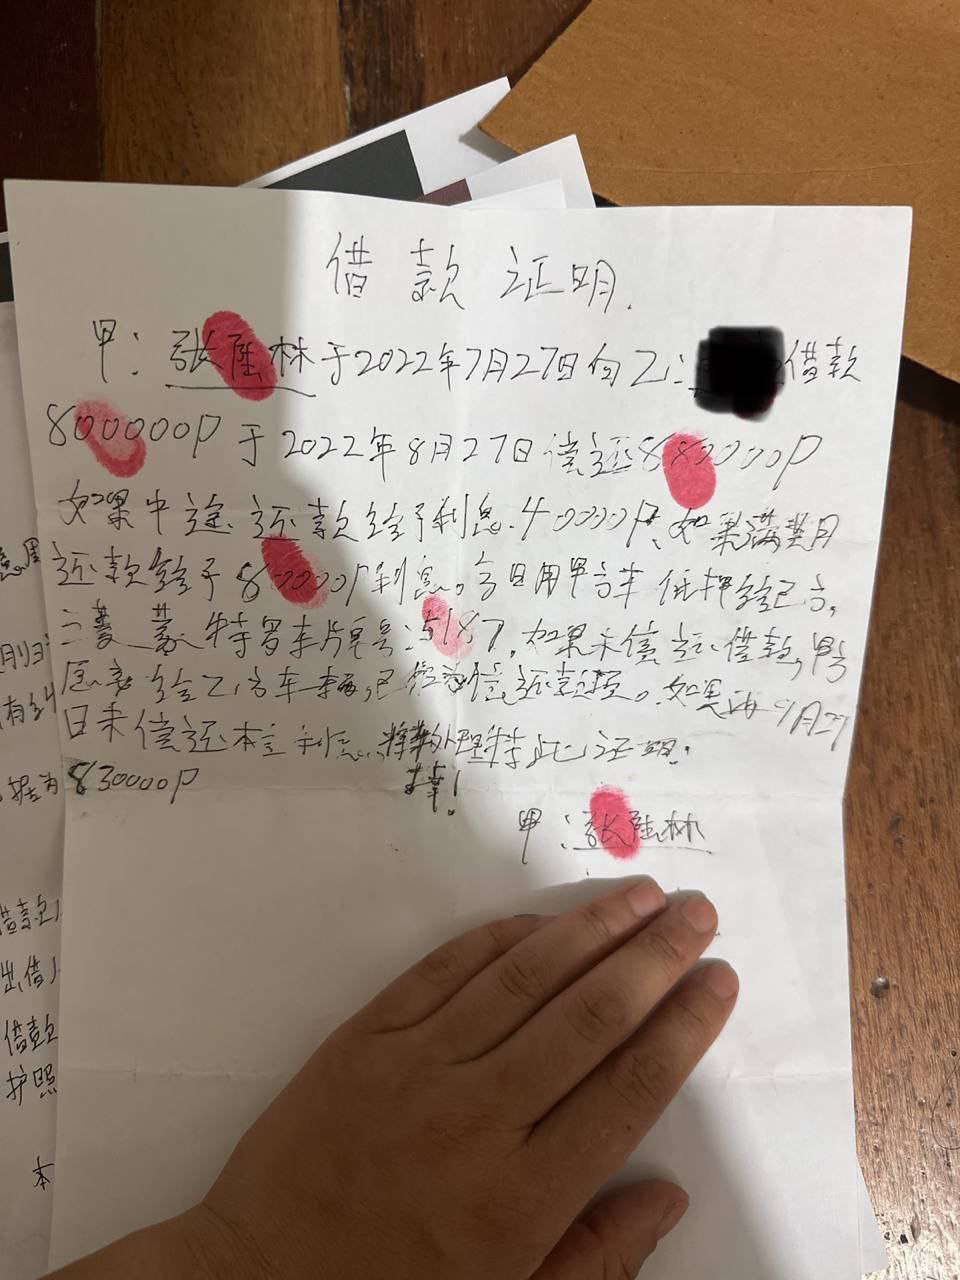 借款证明.
甲：张陆林于2022年7月27日向乙：借款
800000P于2022年8月27日偿还880000P
如果中途还款给予利息.40000P，如果满壹月
还款给予80000P利息。今日用甲方车低押给已方，
三菱蒙特罗车片号：5187，如果未偿还借款，甲方
愿意给乙方车辆，已偿还款项。如果
日未偿还本主利息.将车处理特此证明.
830000P
甲：张陆林
借款
出借
借款
护照
本